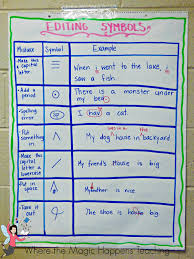 EDITING SYMBOLS
Mistake Symbol Example
Make this a capital letter ≡ When i went to the lake, i saw a fish.
Add a period ⊙ There is a monster under my bed
Spelling error I hav a cat.
Put something in ^ My dog house in backyard
Make this capital letter a lowercase / My friend's House is big
Put in space # Mybrother is nice
Take it out The shoe is house big.
Where The Magic Happens Teaching